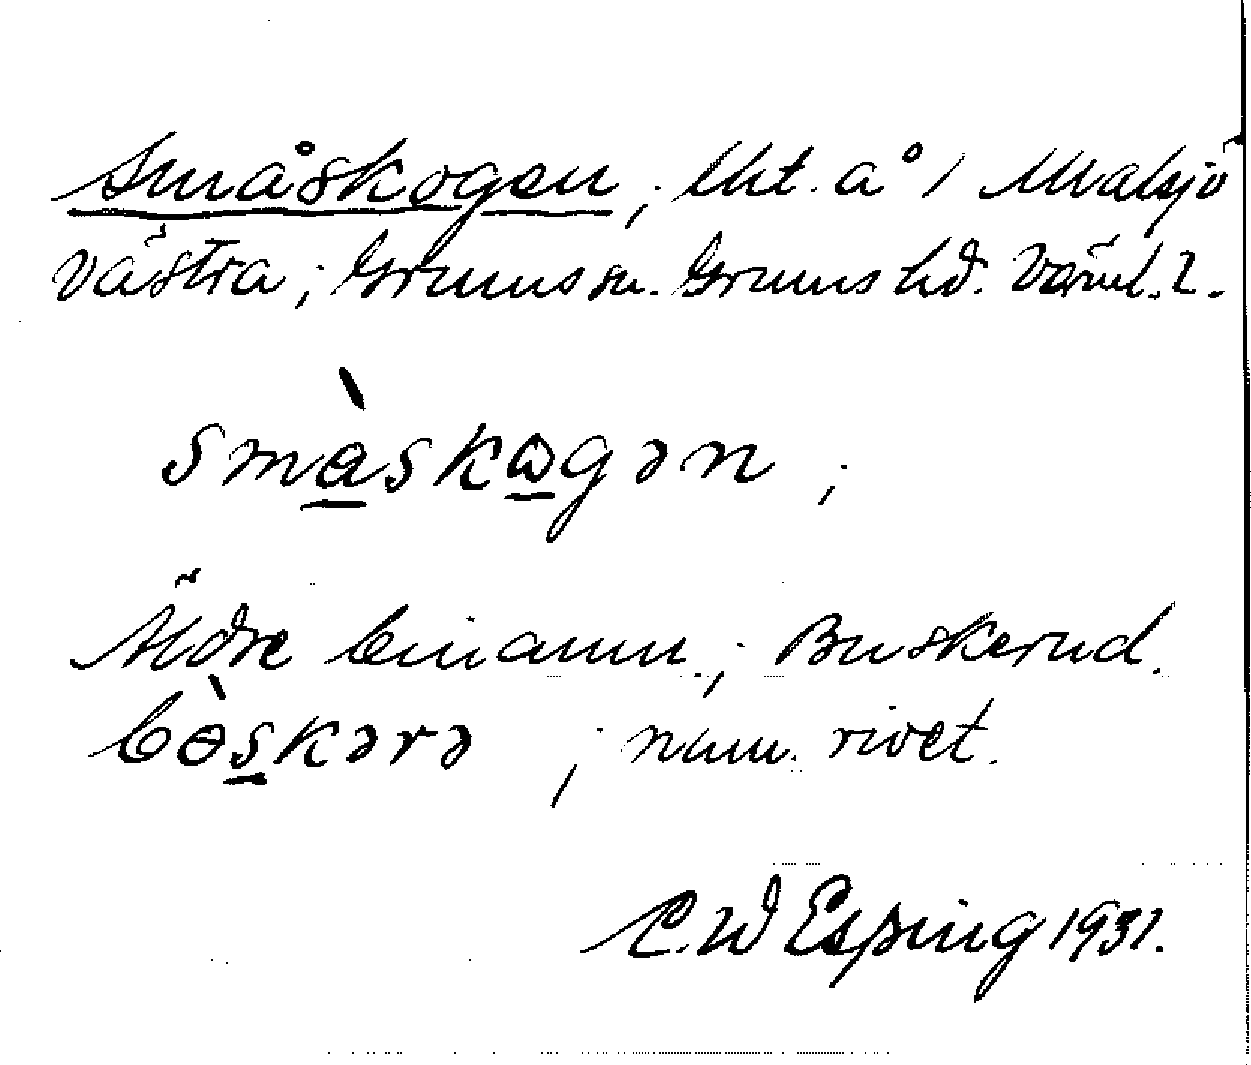 Småskogen; lht. å 1 Malsjö
västra; Grums sn. Grums hd. Värml. l.
smàskωgən;
Äldre binamn; Buskerud.
bɵ̀skərə; numm. rivet.
C. W Esping 1931.